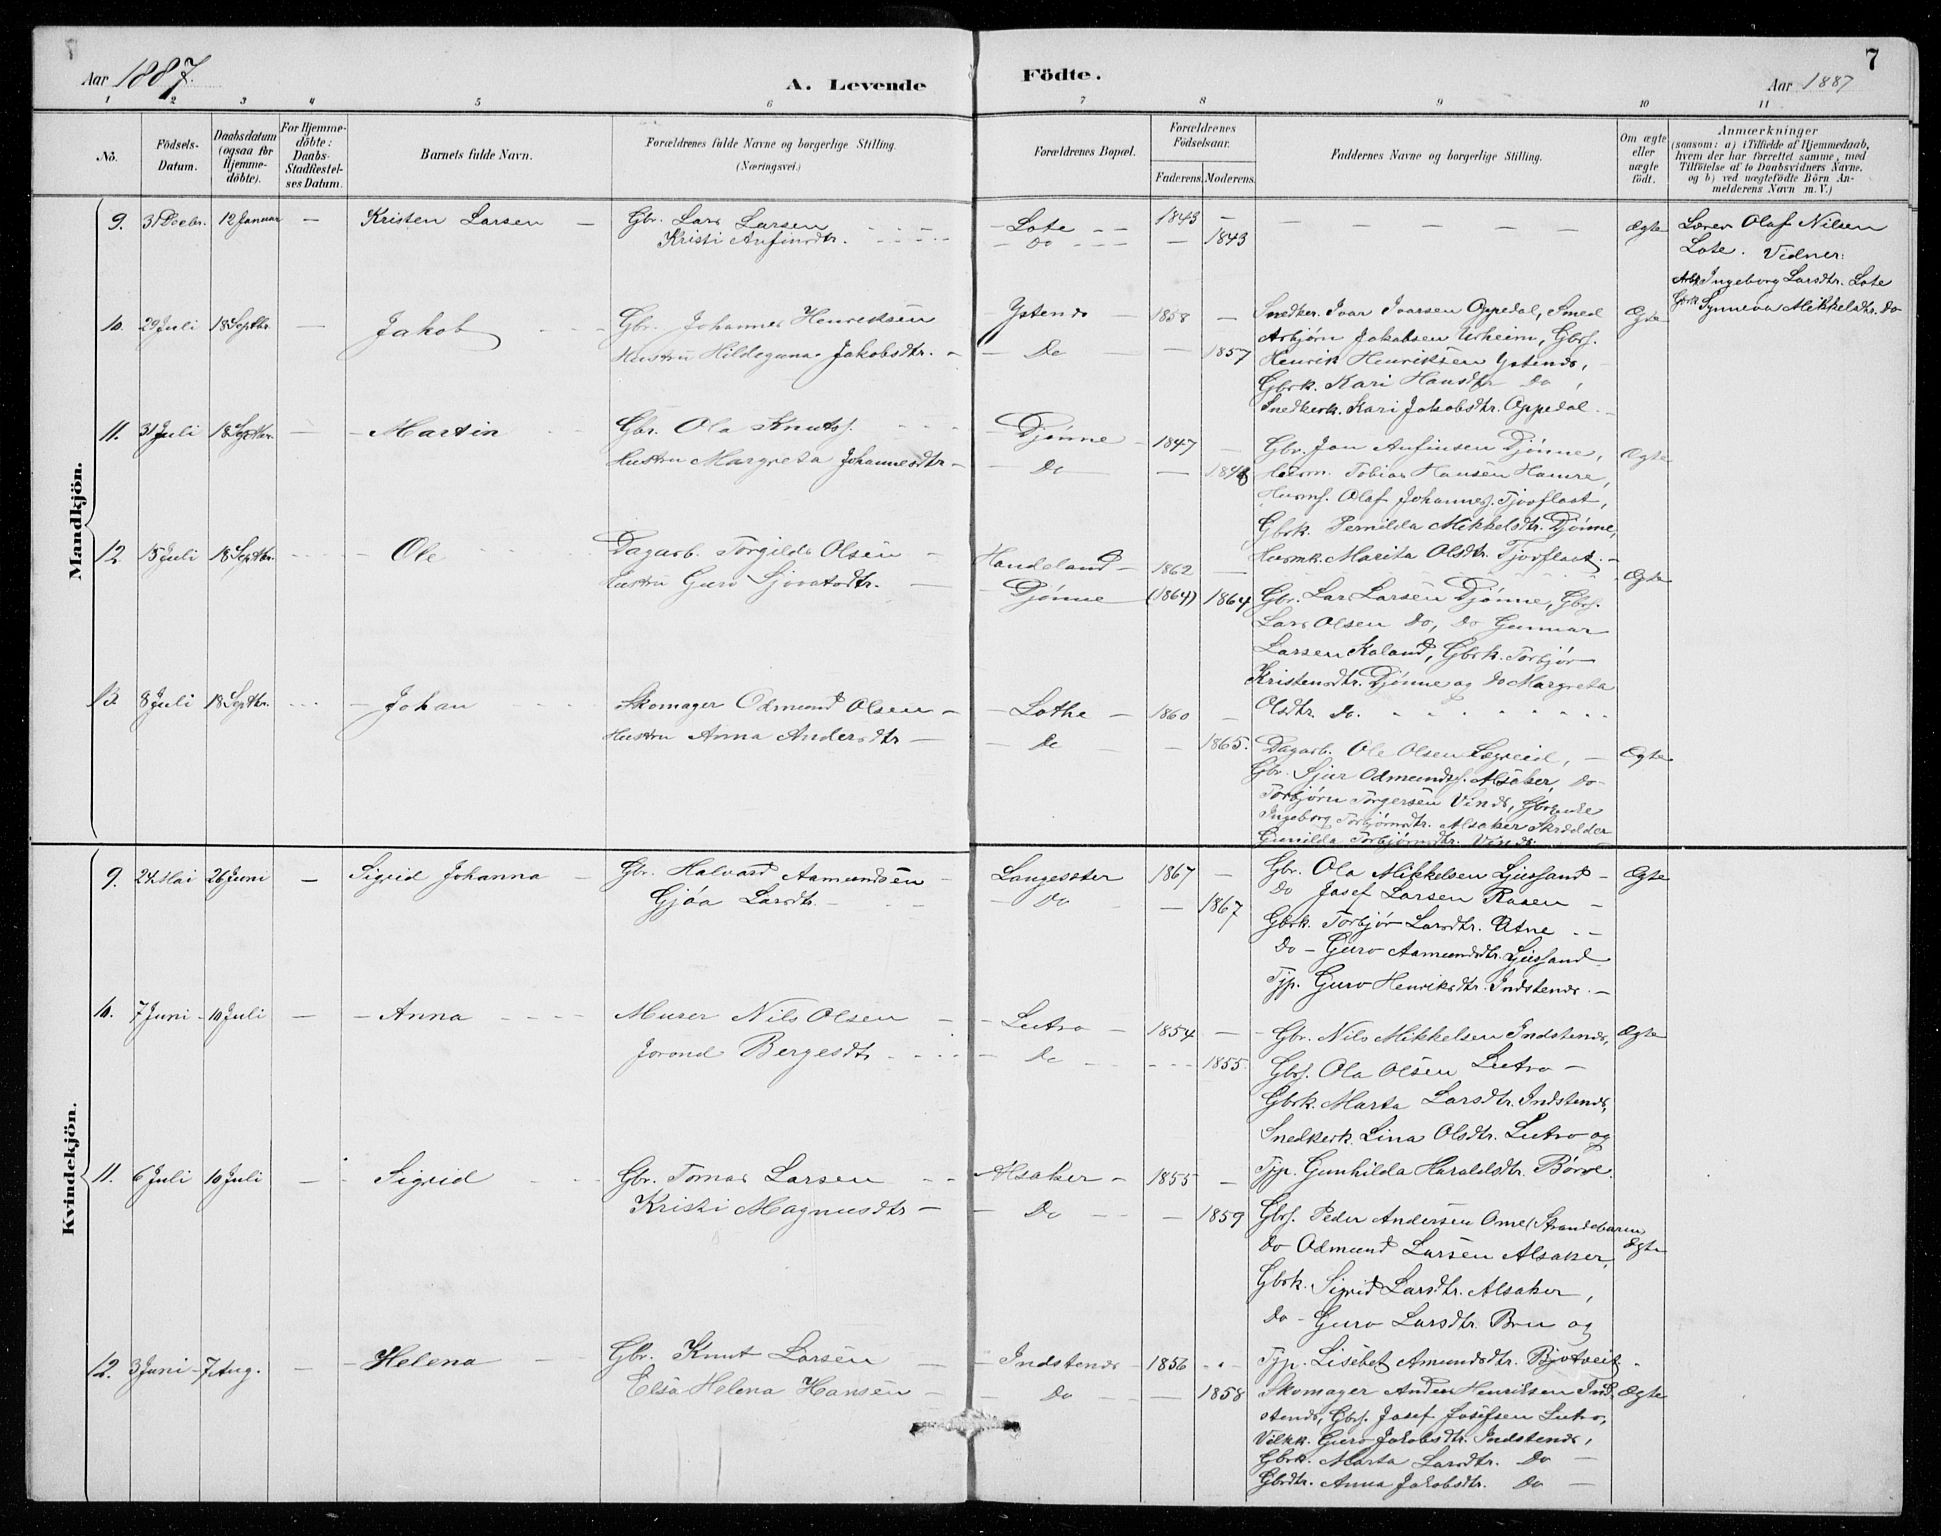 7
Aar 1887.
A. Levende
Födte.
Aar 1887
1 2 3 4 5 6 7 8 9 10 11
No.
Födsels-Datum.
Daabsdatum (ogsaa for Hjemmedöbte).
For Hjemmedöbte: Daabs-Stadfæstelses Datum.
Barnets fulde Navn.
Forældrenes fulde Navne og borgerlige Stilling. (Næringsvei.)
Forældrenes Bopæl.
Forældrenes Födselsaar.
Faderens. Moderens.
Faddernes Navne og borgerlige Stilling.
Om ægte eller uægte födt.
Anmærkninger
(saasom: a) i Tilfælde af Hjemmedaab, hvem der har forrettet samme, med Tilföielse af to Daabsvidners Navne. og b) ved uægtefödte Börn Anmelderens Navn m. V.)
Mandkjön.
9. 31 Decbr. 12 Januar — Kristen Larsen — Gbr. Lars Larsen — Lote — 1843 — Ægte
Kristi Anfinsdtr. — Do — 1843
Lærer Olaf Nilsen
Lote. Vidner:
Ingeborg Larsdtr. Lote
Gbrk. Synneva Mikkelsdtr. Do
10. 29 Juli 18 Septbr. — Jakob — Gbr. Johannes Henriksen — Ystenes — 1858 — Ægte
Hustru Hildeguna Jakobsdtr. — Do — 1857
Snedker. Ivar Ivarsen Oppedal, Smed
Arbjørn Jakobsen Urheim, Gbrs.
Henrik Henriksen Ystenes,
Gbrk. Kari Hansdtr. Do,
Snedkerk. Kari Jakobsdtr. Oppedal. —
11. 31 Juli 18 Septbr. — Martin — Gbr. Ola Knuts. — Djønne — 1847 — Ægte
Hustru Margreta Johannesdtr — Do — 1848
Gbr. Jon Anfinsen Djønne,
Tobias Hansen Hamre,
Husms. Olaf Johannes. Tjovflaat,
Gbrk. Pernilda Mikkelsdtr. Djønne,
Husmk. Marita Olsdtr. Tjovflaat. —
12. 15 Juli 18 Septbr. — Ole — Dagarb. Torgils Olsen — Handeland — 1862 — Ægte
Hustru Guro Sjovatsdtr. — Djønne (1864) 1864
Gbr. Lars Larsen Djønne, Gbrs.
Lars Olsen Do, Do Gunnar
Larsen Kaland, Gbrk. Torbjør
Kristensdtr. Djønne og Do Margreta
Olsdtr. Do.
13. 8 Juli 18 Septbr. — Johan — Skomager Odmund Olsen — Lothe — 1860 —
Hustru Anna Andersdtr — Do — 1865. Ægte
Dagarb. Ole Olsen Lægreid, —
Gbr. Sjur Odmunds. Alsaker, Do
Torbjørn Torgersen Vines,
Ingeborg Torbjørnsdtr. Alsaker
Gunilda Torbjørnsdtr. Vines.
Kvindekjön.
9. 24 Mai 26 Juni — Sigrid Johanna — Gbr. Halvard Aamundsen — Langesæter 1867 — Ægte
Gjøa Larsdtr. — Do — 1867
Gbr. Ola Mikkelsen Ljussand —
Do Josef Larsen Raaen —
Gbrk. Torbjør Larsdtr. Utne —
Do — Guro Aamundsdtr. Ljussand
Tjp. Guro Henriksdtr. Indstenes. —
10. 7 Juni — 10 Juli — Anna — Murer Nils Olsen — Lutro — 1854 — Ægte
Jorond Bergesdtr — Do — 1855
Gbr. Nils Mikkelsen Indstenes,
Gbrs. Ola Olsen Lutro —
Gbrk. Marta Larsdtr. Indstenes,
Snedkerk. Lina Olsdtr. Lutro og
Tjp. Gunhilda Haraldsdtr. Børve.
11. 6 Juli 10 Juli — Sigrid — Gbr. Tomas Larsen — Alsaker — 1855 —
Kristi Magnusdtr — Do — 1859 Ægte
Gbrs. Peder Andersen Ome/Strandebarm
Do Odmund Larsen Alsaker,
Gbrk. Sigrid Larsdtr. Alsaker,
Do — Guro Larsdtr. Bru og
Tjp. Lisebet Amundsdtr. Bjotveit.
12. 3 Juni — 7 Aug. — Helena — Gbr. Knut Larsen — Indstenes 1856
Elsa Helena Hansen — Do — 1858 Ægte
Skomager Anders Henriksen Ind-
stenes, Gbrs. Josef Josefsen Lutro,
Guro Jakobsdtr. Indstenes,
Gbrk. Marta Larsdtr. Do —
Gbrdtr. Anna Jakobsdtr. Do —